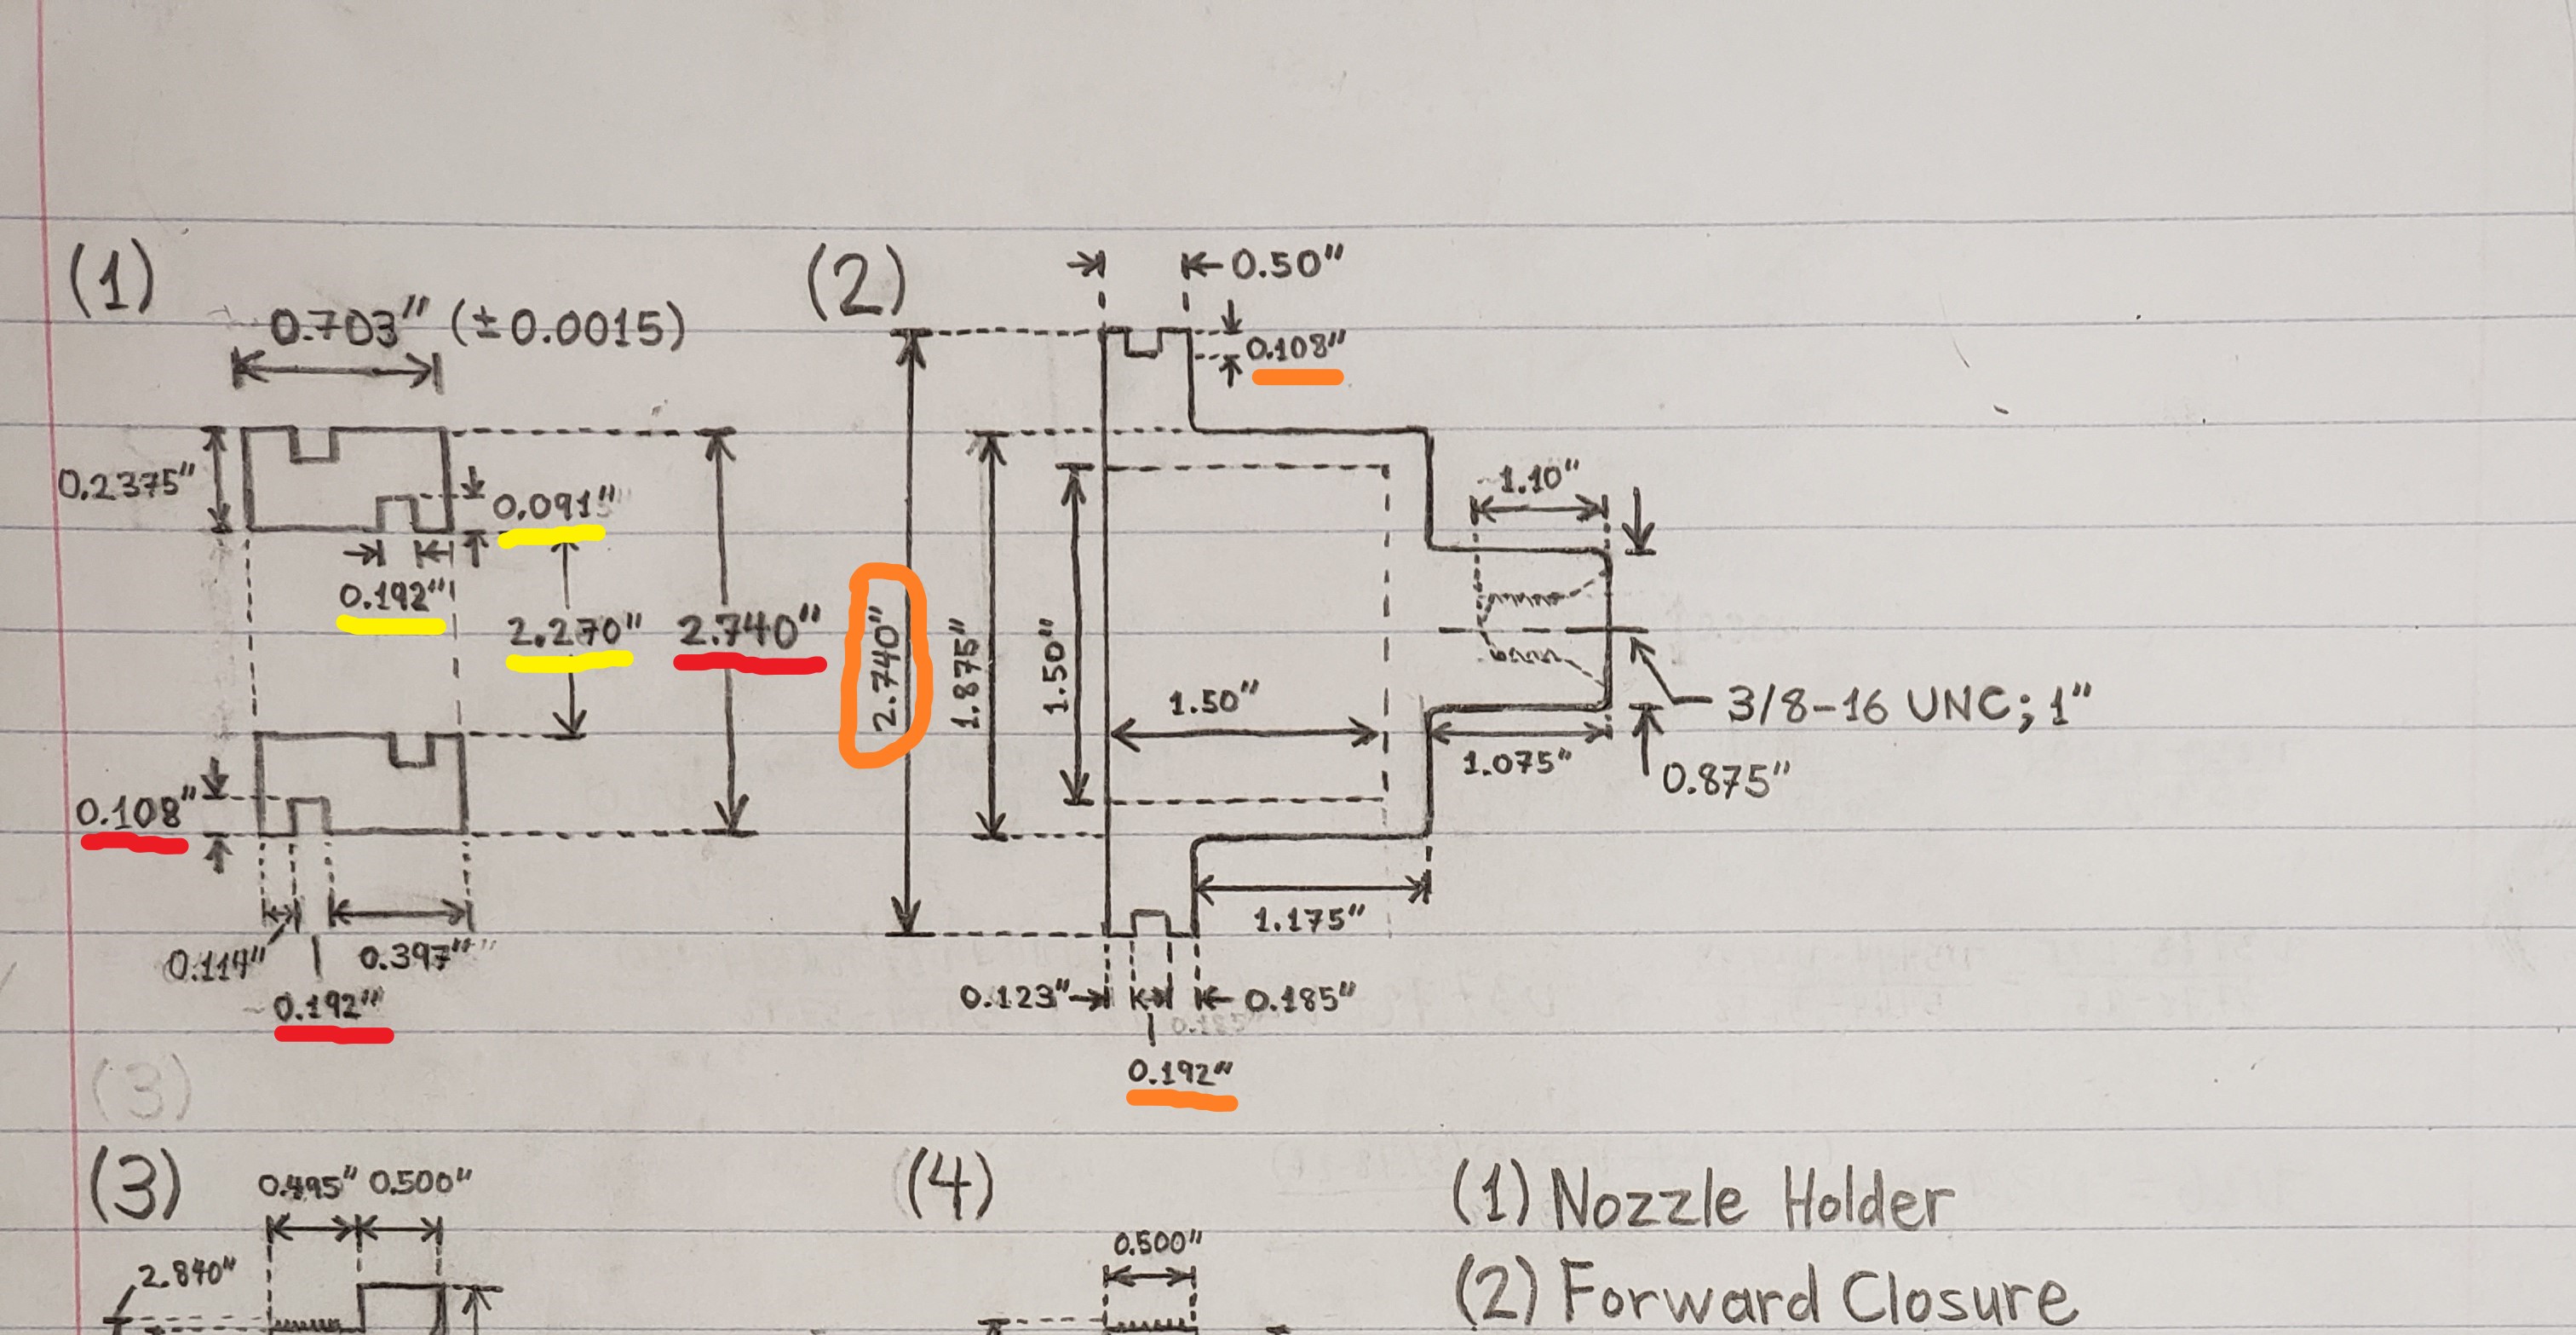 (1)
0.703" (±0.0015)
0.2375"
0.091"
0.192"
2.270"
2.740"
0.108"
0.114"
0.397"
0.192"
(2)
0.50"
0.108"
2.740"
1.875"
1.50"
1.50"
1.10"
3/8-16 UNC; 1"
1.075"
0.875"
1.175"
0.123"
0.185"
0.185"
0.192"
(3)
(3)
0.495" 0.500"
2.840"
(4)
0.500"
(1) Nozzle Holder
(2) Forward Closure